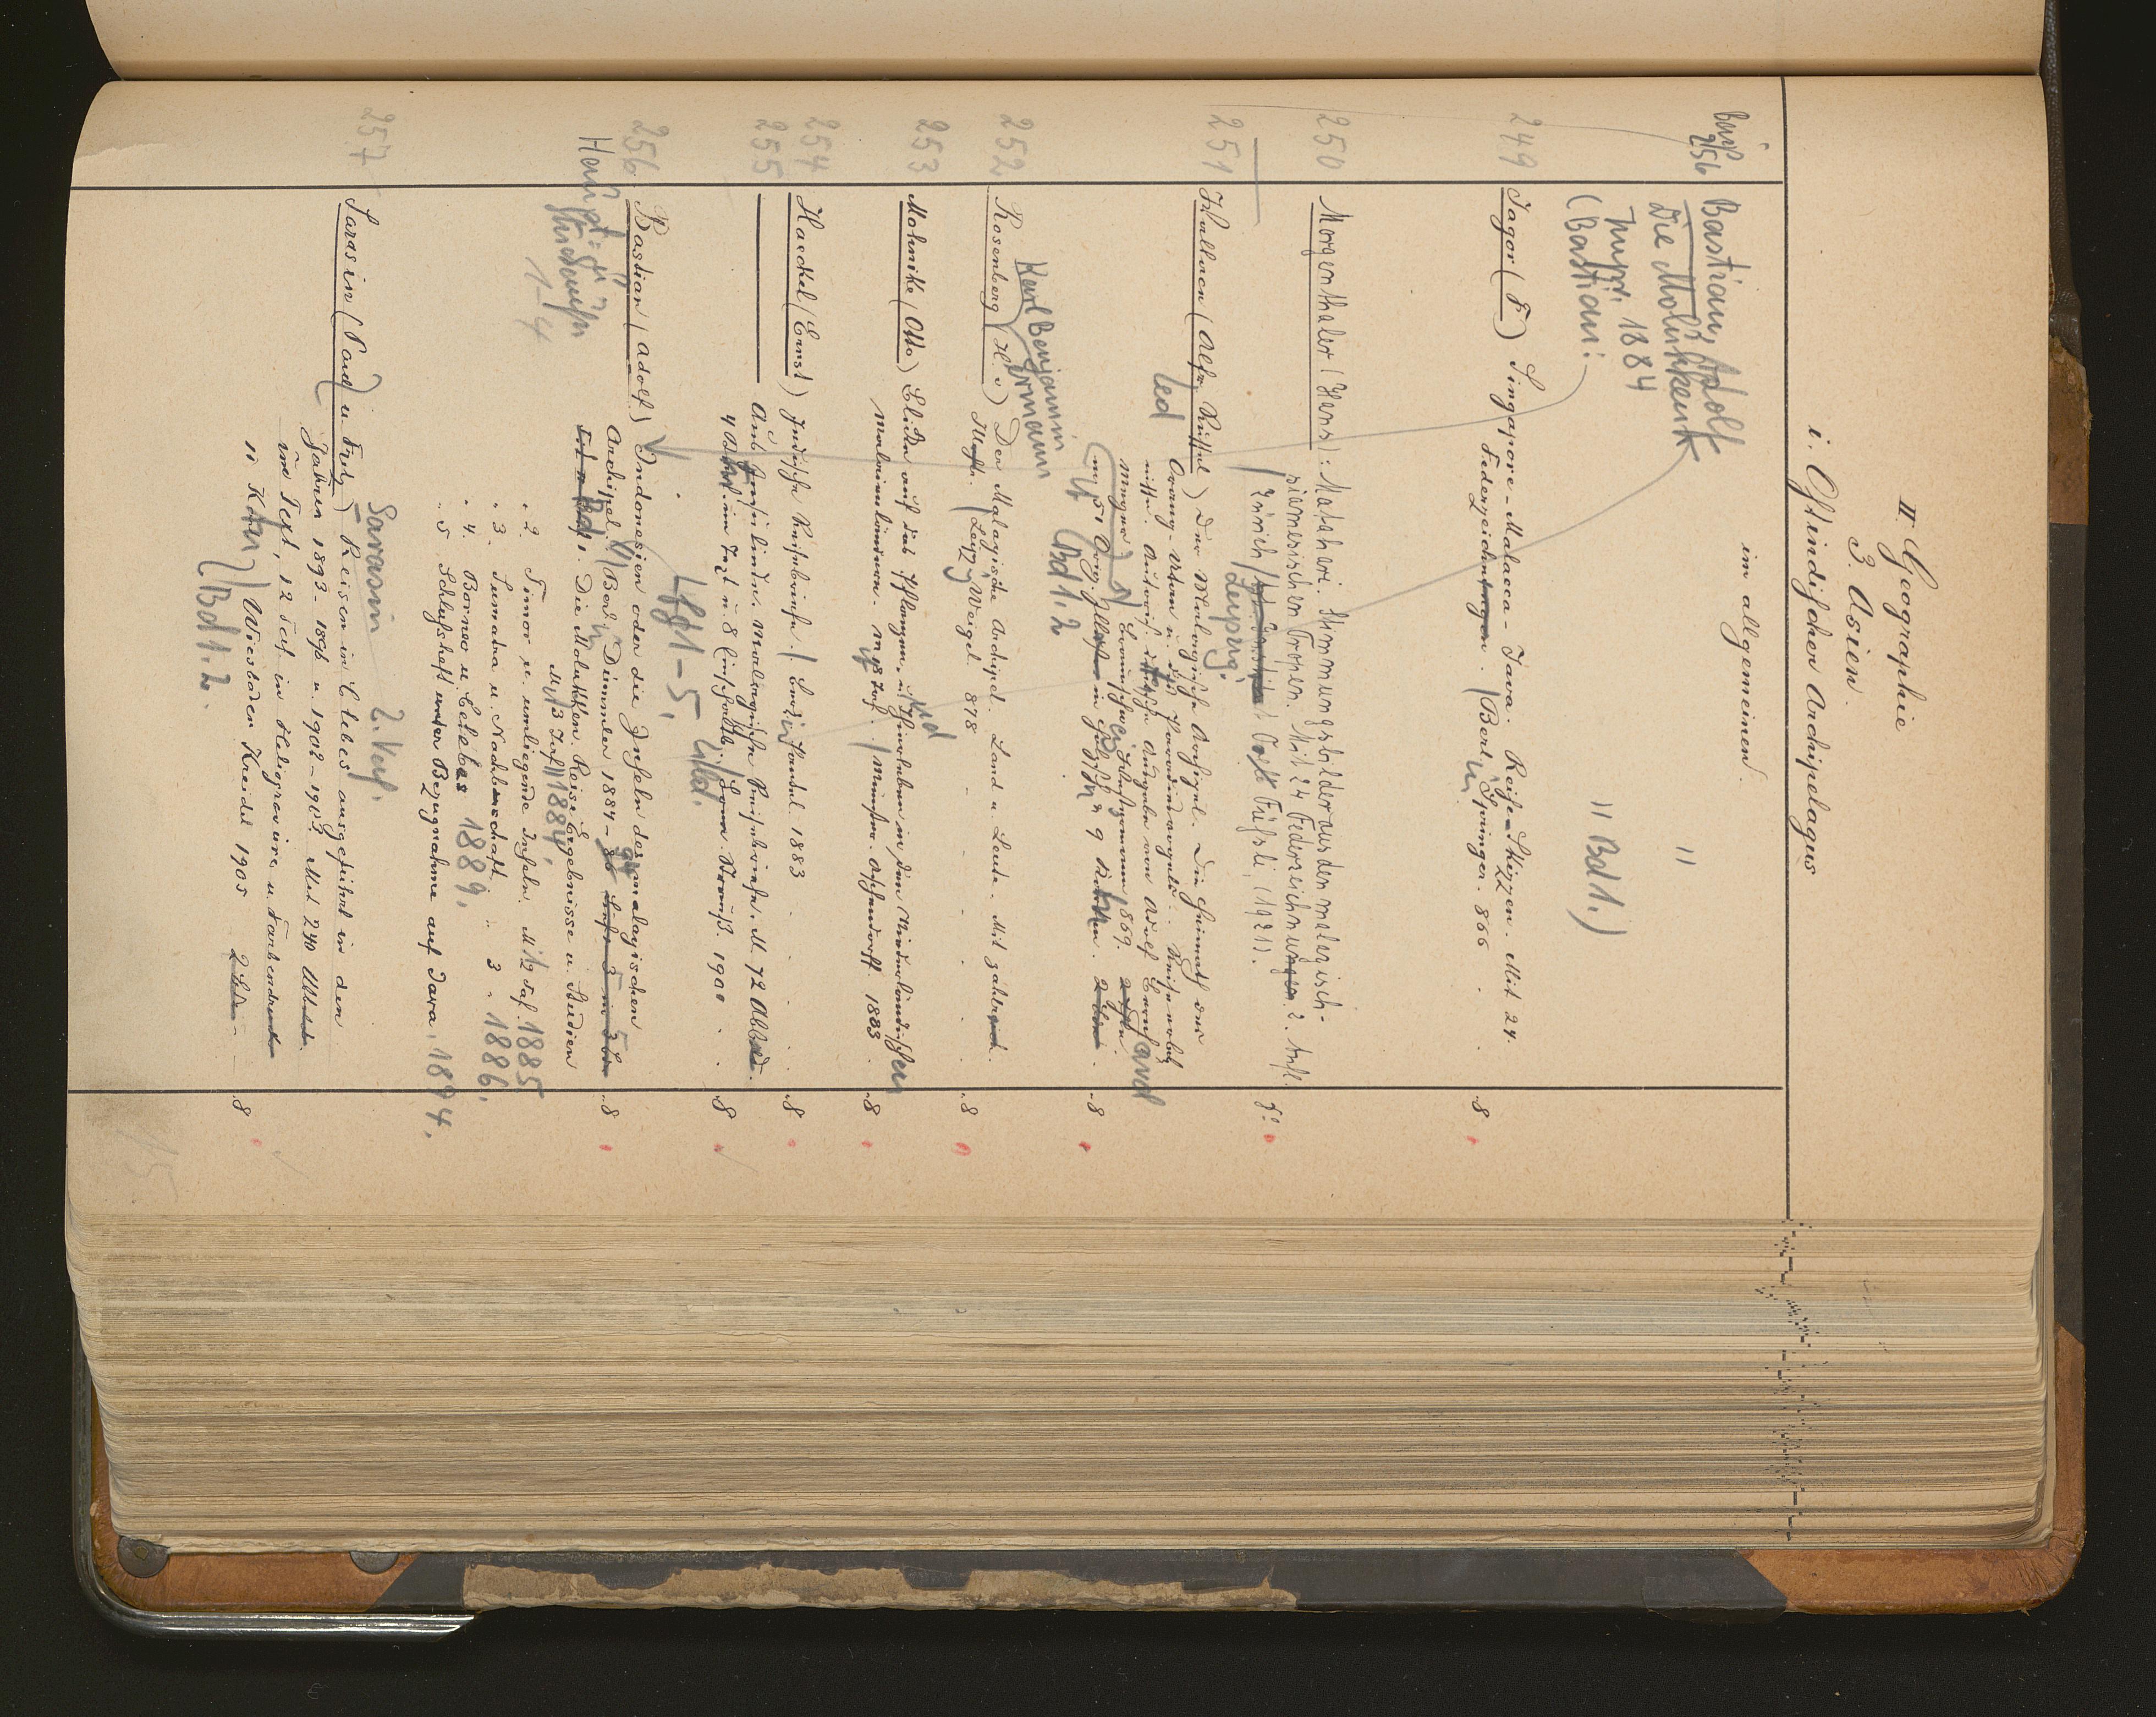 II. Geographie
3. Asien.
i. Ostindischer Archipelagus
im allgemeinen.
Bastian, Adolf "
256 Die Molukken
1884
(Bastian: " Bd 1.)
249 Jagor (F.) Singapore-Malacca-Java. Reise-Skizzen. Mit 24
Federzeichnungen. Berlin Springer. 866 . . 8
250 Morgenthaler (Hans): Matahari. Stimmungsbilder aus den malayisch-
siamesischen Tropen. Mit 24 Federzeichnungen 2. Aufl.
Zürich Leipzig: Orell Füssli (1921). 8°
251 Wallace (Alfred Russel) Der Malayische Archipel. Die Heimath des
Orang-Utan u. des Paradiesvogels. Reiseerleb
nisse. Autoris. deutsche Ausgabe von Adolf Bernhard
Meyer Braunschweig Westermann 869.
m. 51 Orig. in Holzschn. u 9 Karten. 8
Bd 1. 2
Karl Benjamin
Hermann
252 Rosenberg (H. v.) Der Malayische Archipel. Land u. Leute. Mit zahlreich.
Illustr. Leipzig Weigel 878 8
253 Mohnike (Otto) Blicke auf das Pflanzen- und Thierleben in den Niederländischen
Malaienländern. Münster. Aschendorff. 1883. 8
254 Haeckel (Ernst) Indische Reisebriefe. Berlin Paetel. 1883 8
255 Aus Insulinde. Malayische Reisebriefe. M 72 Abbild.
4 Karten im Text u. 8 Einschaltb. Bonn. Strauß. 1900 8
Lfg 1-5.
256 Bastian (Adolf) Indonesien oder die Inseln des malayischen
Archipel. Berlin Dümmler 1884-94 8
1-4
Bd 1. Die Molukken. Reise Ergebnisse u. Studien
M. 3 Taf. 1884.
" 2. Timor u. umliegende Inseln. Mit 2 Taf. 1885
" 3. Sumatra u. Nachbarschaft " 3 " 1886.
" 4. Borneo u. Celebes 1889.
" 5 Schlußheft unter Bezugnahme auf Java. 1894.
Sarasin 2. Verf.
257 Sarasin (Paul u. Fritz) Reisen in Celebes ausgeführt in den
Jahren 1893-1896 u. 1902-1903. Mit 240 Abbild.
im Text, 12 Taf. in Heliogravüre u. Farbendruck
11 Karten Wiesbaden Kreidel 1905 8
Bd 1. 2.
15